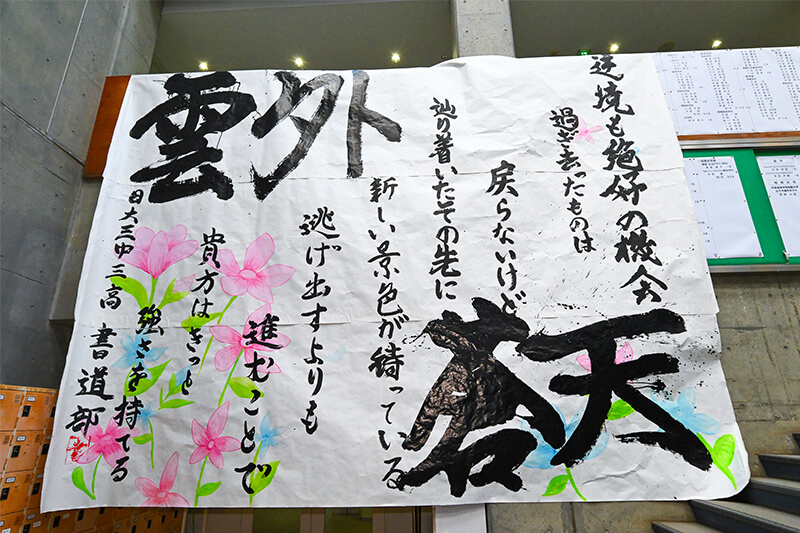 雲外
蒼天
逆境も絶好の機会
過ぎ去ったものは
戻らないけど
辿り着いたその先に
新しい景色が待っている
逃げ出すよりも
進むことで
貴方はきっと
強さを持てる
日大三中三高 書道部